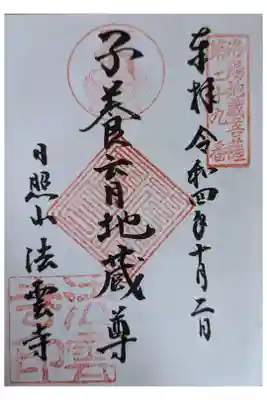 地蔵菩薩
第二十九番
奉拝 令和四年十月二日
子養育地蔵尊
日照山 法雲寺
法雲
寺印